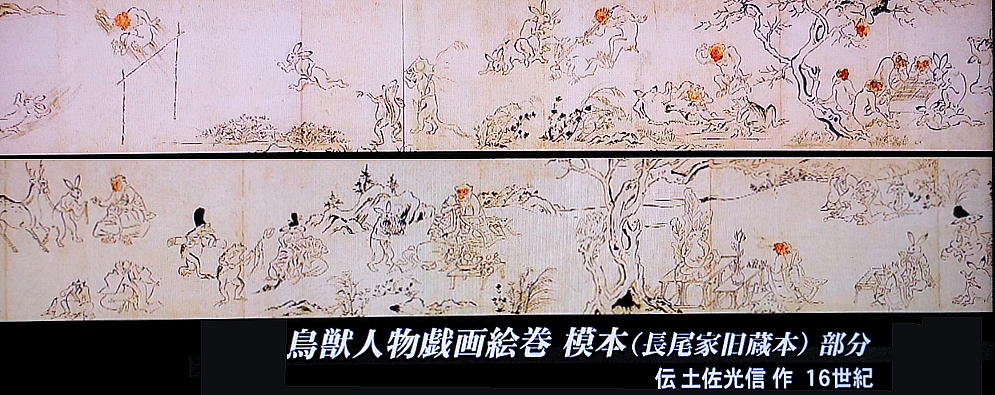 鳥獣人物戯画絵巻 模本(長尾家旧蔵本) 部分
伝 土佐光信 作 16世紀